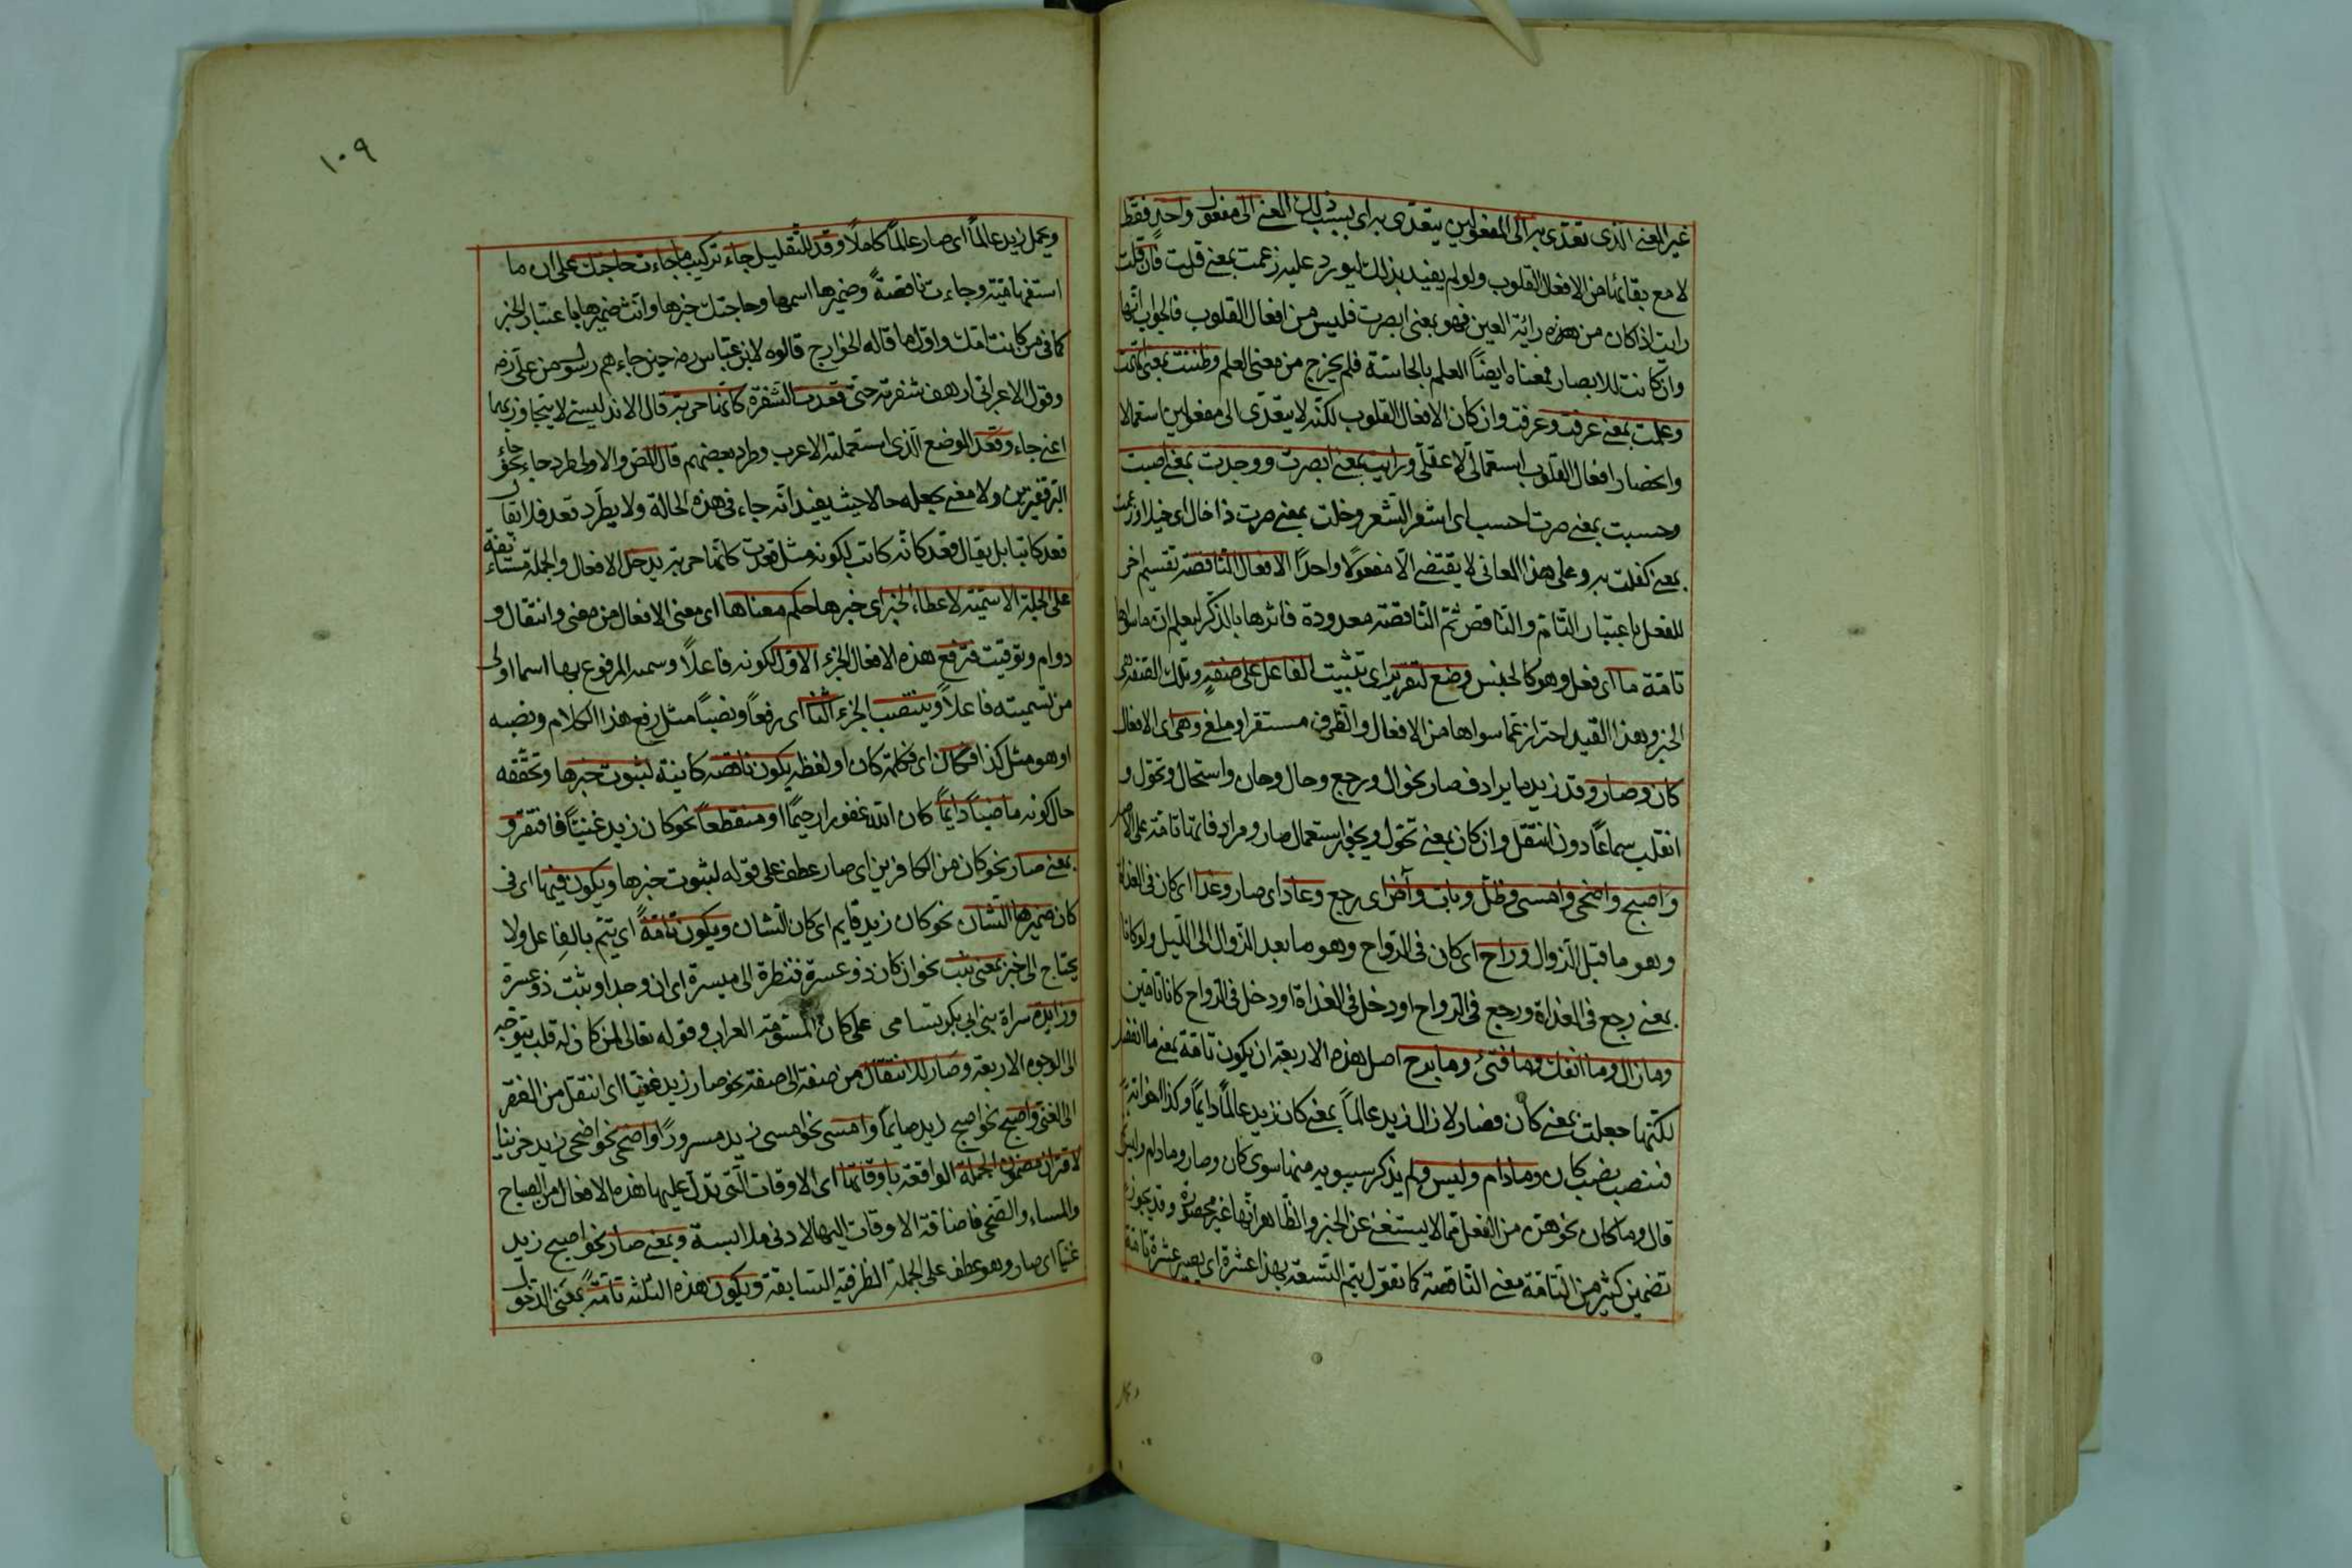 غير المعنى الذى تعدى به الى المفعولين يتعدى به اى بسبب ذلك المعنى الى مفعول واحد فقط
لا مع بقائها من الافعال القلوب ولو لم يفيد بذلك ليورد عليه زعمت بمعنى قلت فان قلت
رايت اذا كان من هذه رائة العين فهو بمعنى ابصرت فليس من افعال القلوب فالجواب انها
وان كانت للابصار فمعناه ايضًا العلم بالحاسّة فلم يخرج من معنى العلم وظننت بمعنى اتهمت
وعلمت بمعنى عرفت وعرفت وان كان الافعال القلوب لكنّه لا يتعدّى الى مفعولين استعمالا
وانحصار افعال القلوب استعمالىّ لا عقلىّ ورايت بمعنى ابصرت ووجدت بمعنى اصبت
وحسبت بمعنى صرت احسب اى اشقر الشعر وخلت بمعنى صرت ذا خال اى خيلا وزعمت
بمعنى كفلت به وعلى هذا المعانى لا يقتضى الا مفعولًا واحدًا الافعال الناقصة تقسيم اخر
للفعل باعتبار التامّ والناقص ثم الناقصة معدودة فاثرها بالذكر ليعلم ان ما سواها
تامّة ما اى فعل وهو كالجنس وضع لتقرير اى تثبيت الفاعل على صفةٍ وتلك الصّفة هى
الخبر وبهذا القيد احتراز عمّا سواها من الافعال والظرف مستقر او ملغى وهى اى الافعال
كان وصار وقد زيد ما يرادف صار نحو ال ورجع وحال وحار واستحال وتحوّل و
انقلب سماعًا دون انتقل وان كان بمعنى تحوّل ويجئ استعمال صار ومراد فاتها تامّة على الاصل
واصبح واضحى وامسى وظلّ وبات وآض اى رجع وعاد اى صار وغدا اى كان فى الغداة
وهو ما قبل الزوال وراح اى كان فى الرّواح وهو ما بعد الزوال الى اللّيل ولو كانا
بمعنى رجع فى الغداة ورجع فى الرواح او دخل فى الغداة او دخل فى الرواح كانا تامّين
وما زال وما انفك وما فتئ وما برح اصل هذه الاربعة ان يكون تامّة بمعنى ما انفصل
لكنّها جعلت بمعنى كان فصار لا زال زيد عالماً بمعنى كان زيد عالماً دائماً وكذا اخواته
فنتصب نصب كان وما دام وليس ولم يذكر سيبويه منها سوى كان وصار وما دام وليس
قال وما كان نحو هنّ من الفعل ممّا لا يستغنى عن الخبر والظّاهر انّها غير محصورة وقد يجوز
تضمين كثير من التامّة معنى الناقصة كما تقول يتم التّسعة بهذا عشرة اى يصير عشرة تامّة
١٠٩
وكمل زيد عالماً اى صار عالماً كاملًا وقد للتقليل جاء تركيب ما جاءت حاجتك على ان ما
استفهاميّة وجاءت ناقصةً وضميرها اسمها وحاجتك خبرها وانّث ضميرها باعتبار الخبر
كما فى من كانت امّك واوّل ما قاله الخوارج قالوه لابن عبّاس رض حين جاءهم رسولا من على رض
وقول الاعرابى ارهف شفرته حتى قعدت الشّفرة كانّها حربة قال الاندليسى لا يتجاوز بهما
اعنى جاء وقعد الموضع الّذى استعملته الاعرب وطرد بعضهم قال الرّضى والاولى طرد جاء نحو جاء
البرّ قفيزين ولا معنى يجعله حالا حيث يفيد انّه جاء فى هذه الحالة ولا يطّرد قعد فلا يقال
قعد كاتبا بل يقال قعد كانّه كاتب لكونه مثل قعدت كانّها حربة يدخل الافعال والجملة مستأنفة
على الجملة الاسميّة لاعطاء الخبر اى خبرها حكم معناها اى معنى الافعال من مضى وانتقال و
دوام وتوقيت فترفع هذه الافعال الجزء الاوّل لكونه فاعلاً وسمه المرفوع بها اسما اولى
من تسميته فاعلاً وينتصب الجزء الثّانى اى رفعاً ونصبًا مثل رفع هذا الكلام ونصبه
او هو مثل كذا فكان اى فكلمة كان او لفظه يكون ناقصه كاينة لثبوت خبرها وتحقّقه
حال كونه ماضيًا دايماً كان الله غفورا رحيمًا او منقطعاً نحو كان زيد غنيّاً فافتقر و
بمعنى صار نحو كان من الكافرين اى صار عطف على قوله لثبوت خبرها ويكون فيها اى فى
كان ضميرها الشان نحو كان زيد قايم اى كان الشان ويكون تامّةً اى يتمّ بالفاعل ولا
يحتاج الى خبر بمعنى ثبت نحو ان كان ذو عسرة فنظرة الى ميسرة اى ان وجد او ثبت ذو عسرة
وزايدة سراة بنى ابى بكر تسامى على كان المسوّمة العراب وقوله تعالى لمن كان له قلب يتوجّه
الى الوجوه الاربعة وصار للانتقال من صفة الى صفة نحو صار زيد غنيّا اى انتقل من الفقر
الى الغنى واصبح نحو اصبح زيد صايماً وامسى نحو امسى زيد مسرورًا واضحى نحو اضحى زيد حزينا
لاقتران مضمون الجملة الواقعة باوقاتها اى الاوقات الّتى تدلّ عليها هذه الافعال من الصباح
والمساء والضحى فاضافة الاوقات اليها لادنى ملابسة وبمعنى صار نحو اصبح زيد
غنيّا اى صار وهو عطف على الجملة الظرفيّة السّابقة ويكون هذه الثلثة تامّةً بمعنى الدّخول